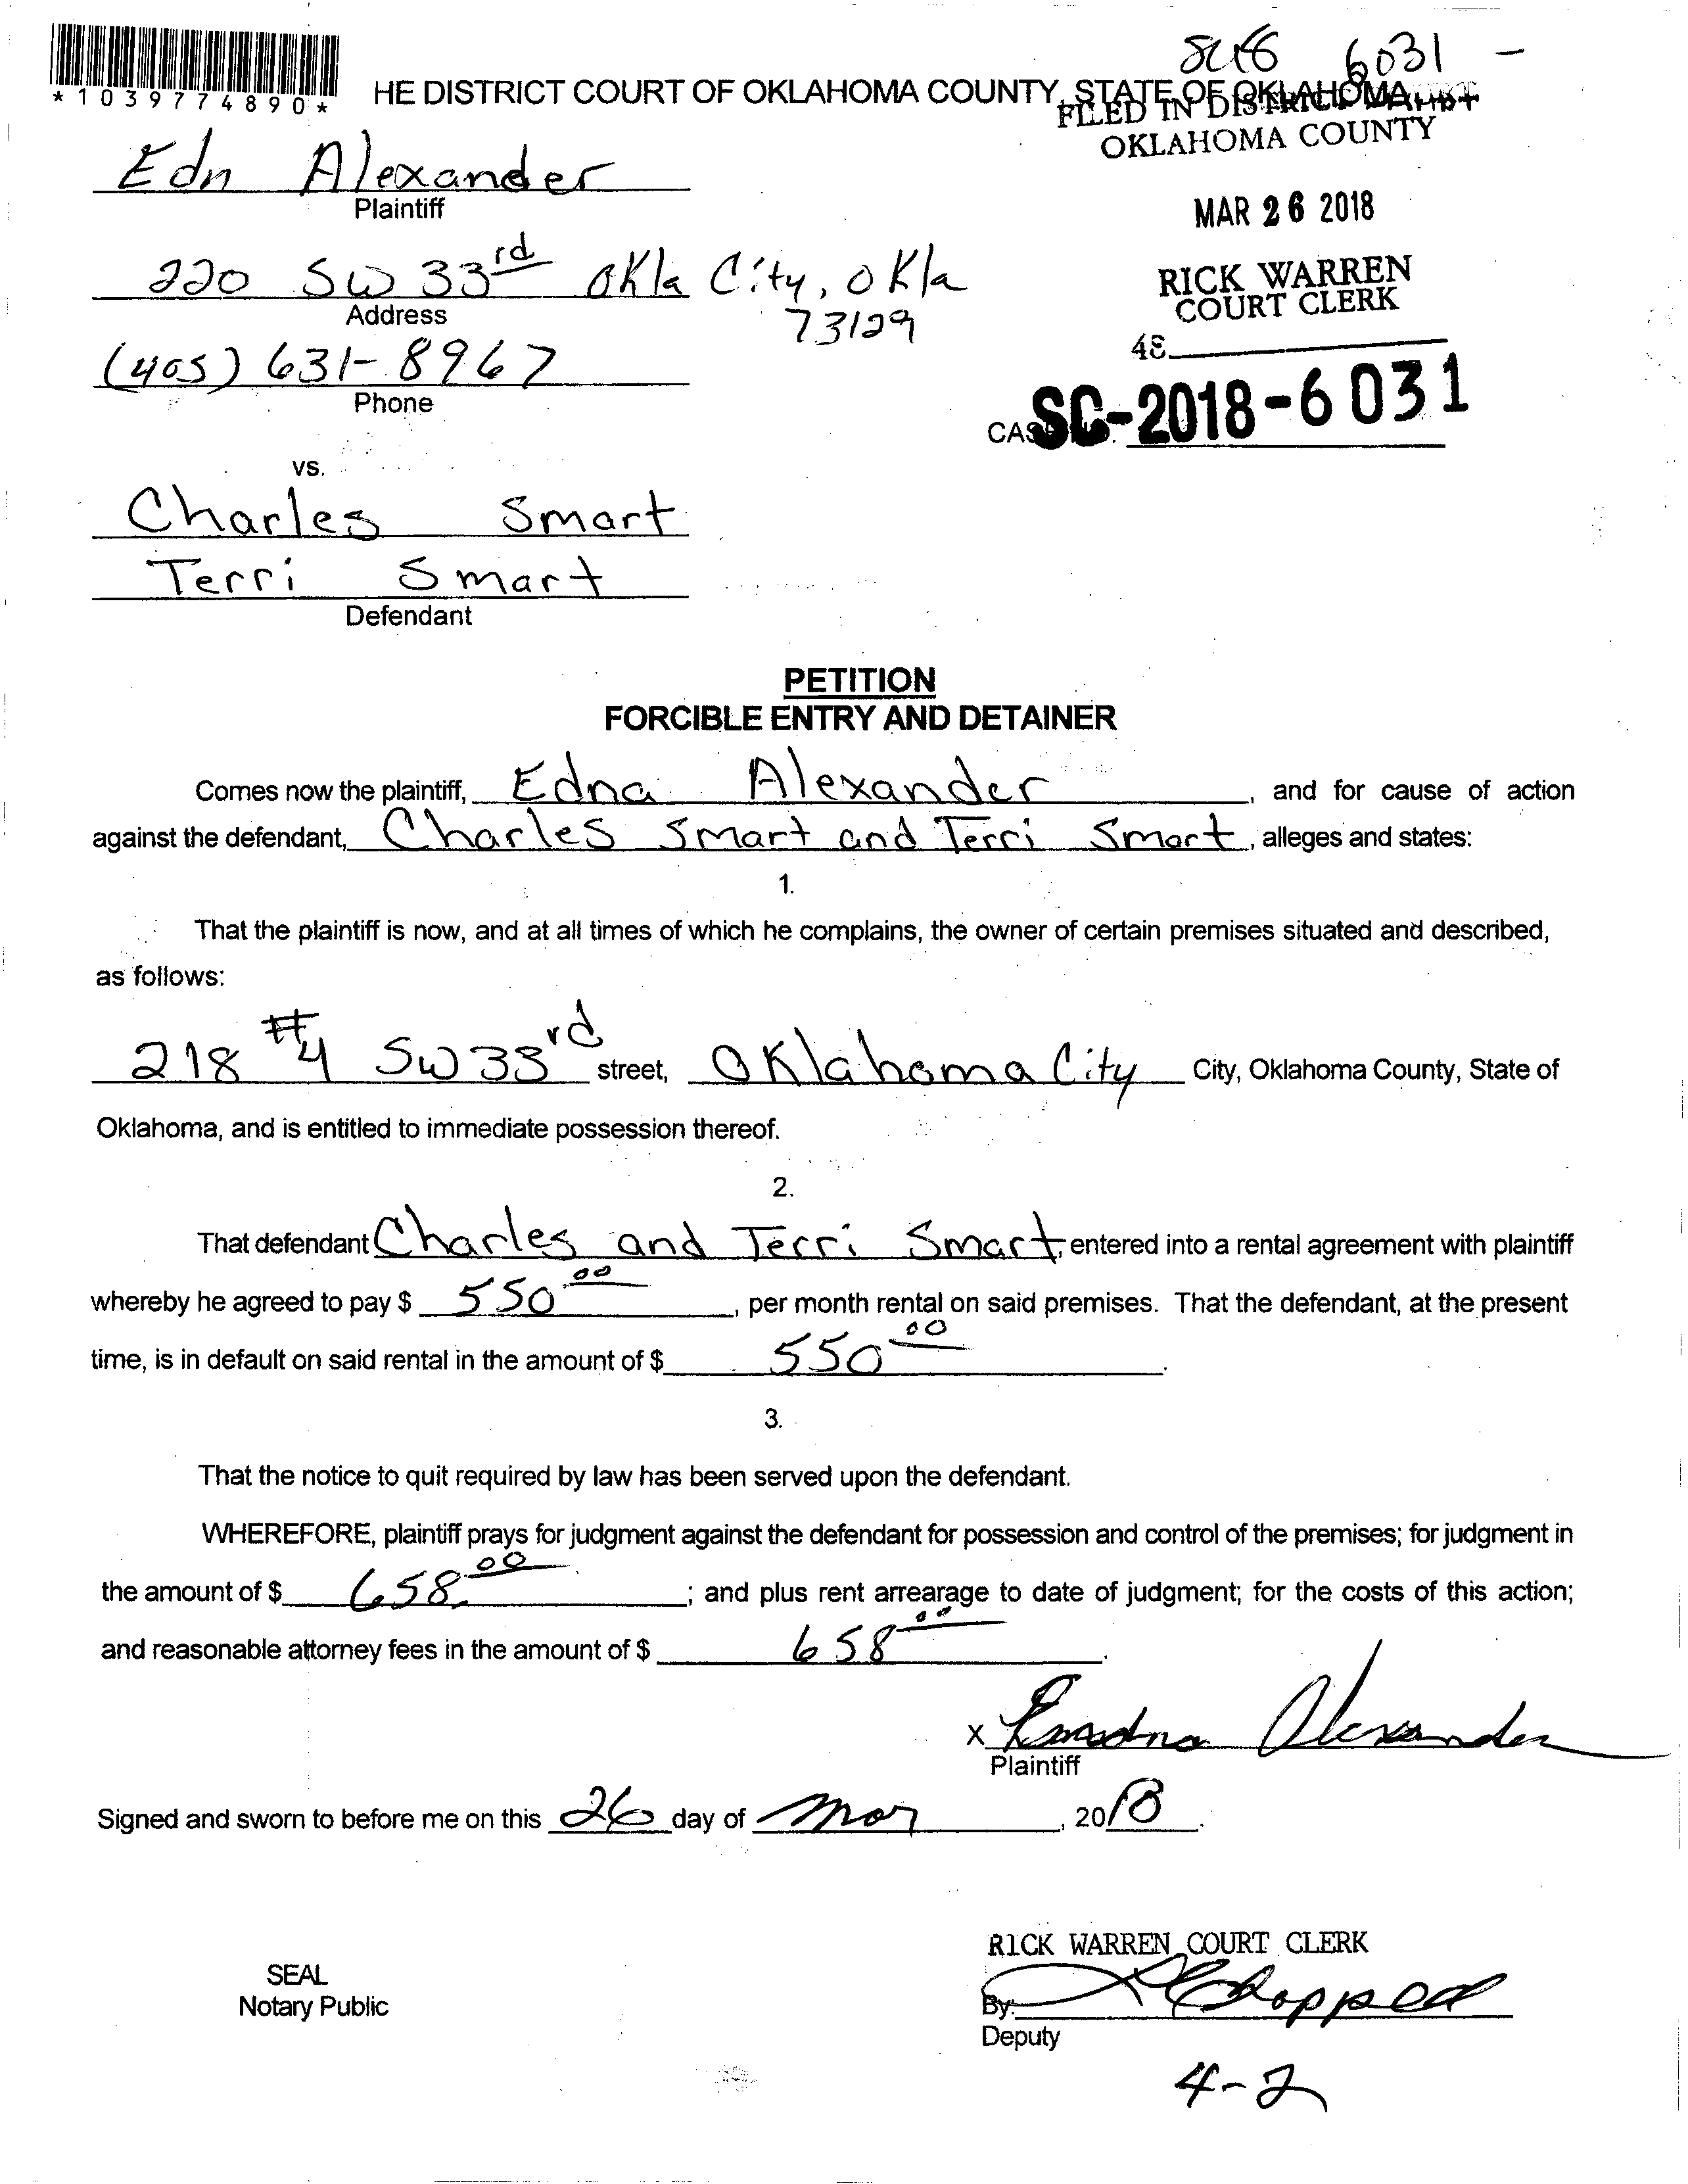 SC18 6031 -
*1039774890*
HE DISTRICT COURT OF OKLAHOMA COUNTY, STATE OF OKLAHOMA
FILED IN DISTRICT COURT
OKLAHOMA COUNTY
Edn Alexander
Plaintiff
MAR 26 2018
220 SW 33rd Okla City, Okla
Address
73129
RICK WARREN
COURT CLERK
48
(405) 631-8967
Phone
CASE NO. SC-2018-6031
vs.
Charles Smart
Terri Smart
Defendant
PETITION
FORCIBLE ENTRY AND DETAINER
Comes now the plaintiff, Edna Alexander, and for cause of action
against the defendant, Charles Smart and Terri Smart, alleges and states:
1.
That the plaintiff is now, and at all times of which he complains, the owner of certain premises situated and described,
as follows:
218 #4 SW 33rd street, Oklahoma City City, Oklahoma County, State of
Oklahoma, and is entitled to immediate possession thereof.
2.
That defendant Charles and Terri Smart, entered into a rental agreement with plaintiff
whereby he agreed to pay $ 550.00, per month rental on said premises. That the defendant, at the present
time, is in default on said rental in the amount of $ 550 00.
3.
That the notice to quit required by law has been served upon the defendant.
WHEREFORE, plaintiff prays for judgment against the defendant for possession and control of the premises; for judgment in
the amount of $ 658.00; and plus rent arrearage to date of judgment; for the costs of this action;
and reasonable attorney fees in the amount of $ 658 00.
X Alexander
Plaintiff
Signed and sworn to before me on this 26 day of Mar, 2018.
RICK WARREN COURT CLERK
SEAL
Notary Public
By:
Deputy
4-2